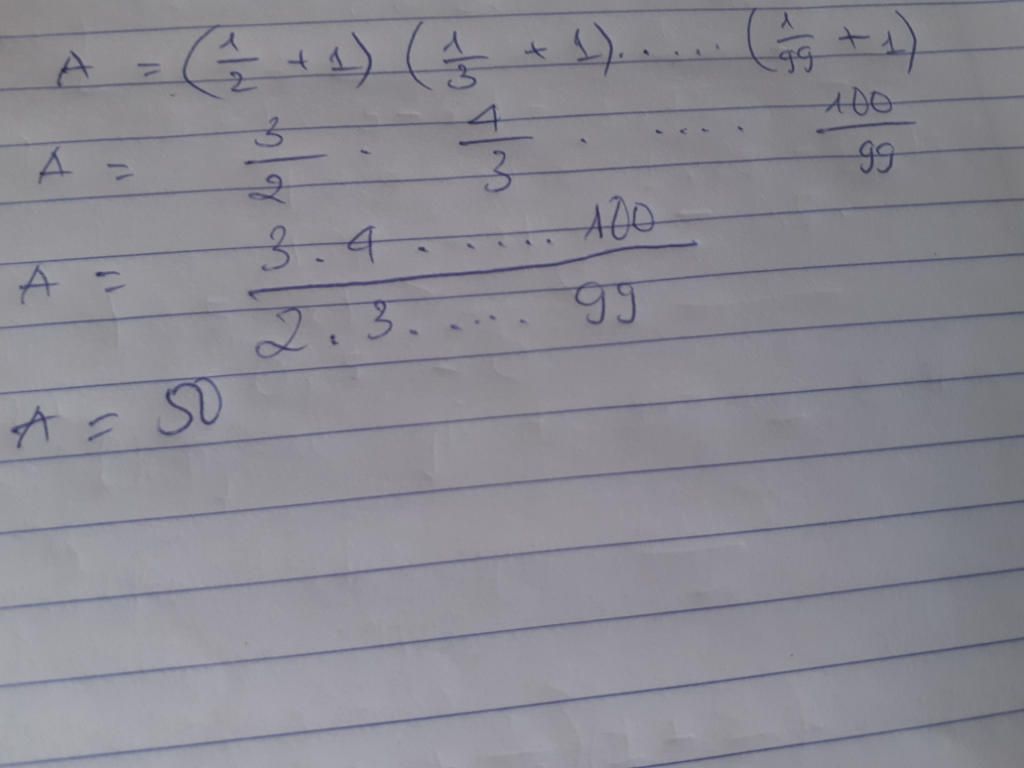 A = (1/2 + 1) (1/3 + 1)...... (1/99 + 1)
A = 3/2 . 4/3 . .... 100/99
A = 3.4....... 100 / 2.3...... 99
A = 50